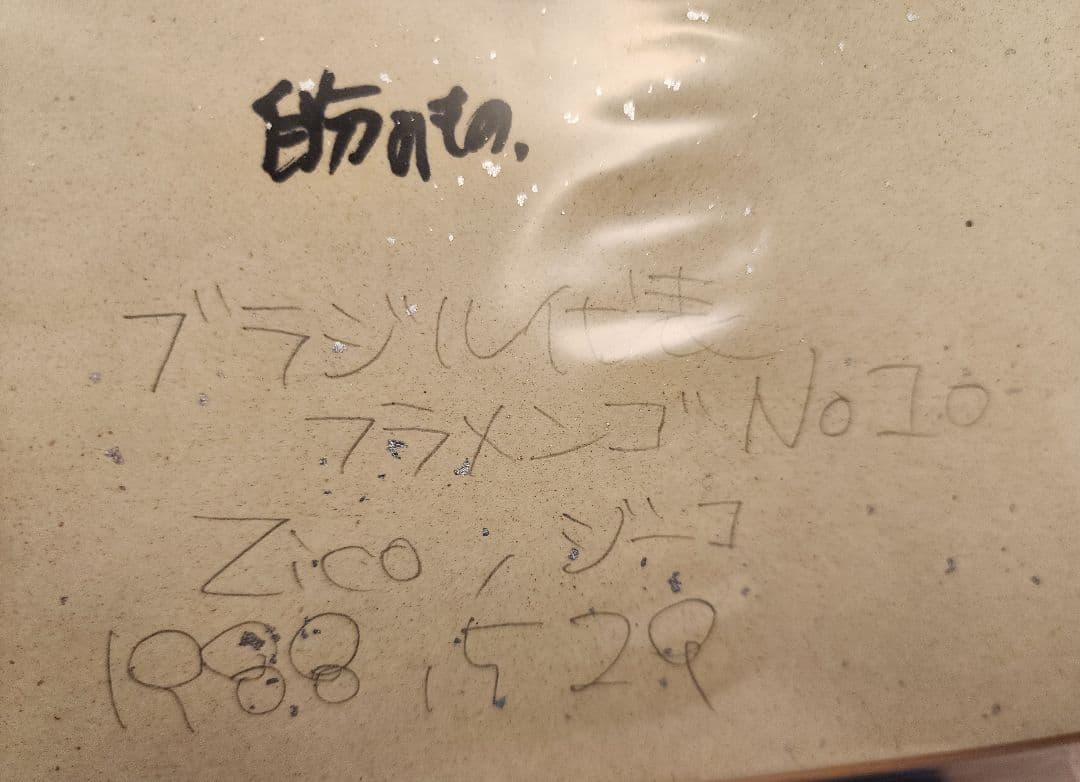 自分のもの.
ブラジル代表
フラメンゴ No 10
Zico, ジーコ
1988, 5 29